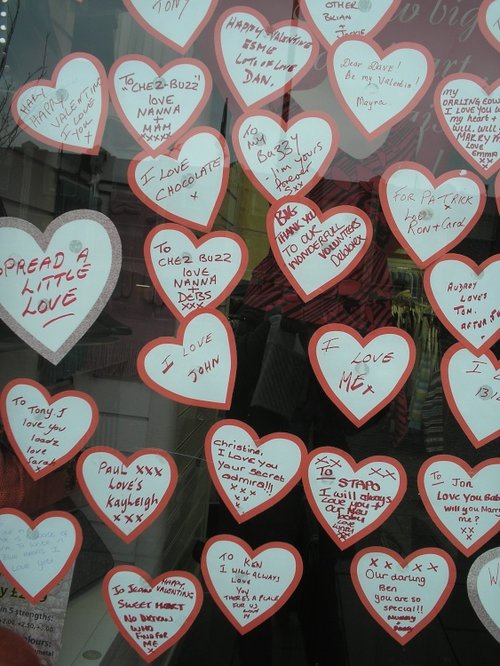 TONY
OTHER
Brian
+
HAPPY VALENTINE
ESME
LOTS OF LOVE
DAN.
Dear Dave!
Be my Valentin!
Mayra
MARY
HAPPY
VALENTINE
I LOVE
YOU
x
To
"CHEZ-BUZZ"
love
NANNA
+
MAM
xxx
my
DARLING
I LOVE YOU
my heart +
will. will
MARRY
love
Emma
To
MY
BUZZY
I'm yours
forever
S xx
I LOVE
CHOCOLATE
x
FOR PATRICK
Love
x
Ron+Carol
BIG
THANK YOU
TO OUR
WONDERFUL
VOLUNTEERS
SPREAD A
LITTLE
LOVE
To
CHEZ BUZZ
love
NANNA
+
DEBS
xxx
AUDREY
LOVES
TOM.
I LOVE
JOHN
I LOVE
ME x
I
13
To Tony. I
love you
loadz
love
Sarah
PAUL XXX
LOVE'S
KAYLEIGH
xxx
Christine,
I LOVE you
your secret
admiral!!
x x x
x
xx xx
To
STAPO
I will always
love you +
our
love
To JON
Love you Babe
will you Marry
me?
x x
To KEN
I WILL ALWAYS
LOVE
YOU
THERE'S A PLACE
FOR US
LOVE
M
x x x x x
Our darling
Ben
you are so
special!!
Mummy +
xxxx
To JEAN HAPPY
VALENTINE
SWEET HEART
NO BUTTON
WHO
FIND FOR
ME
x
in 5 strengths: